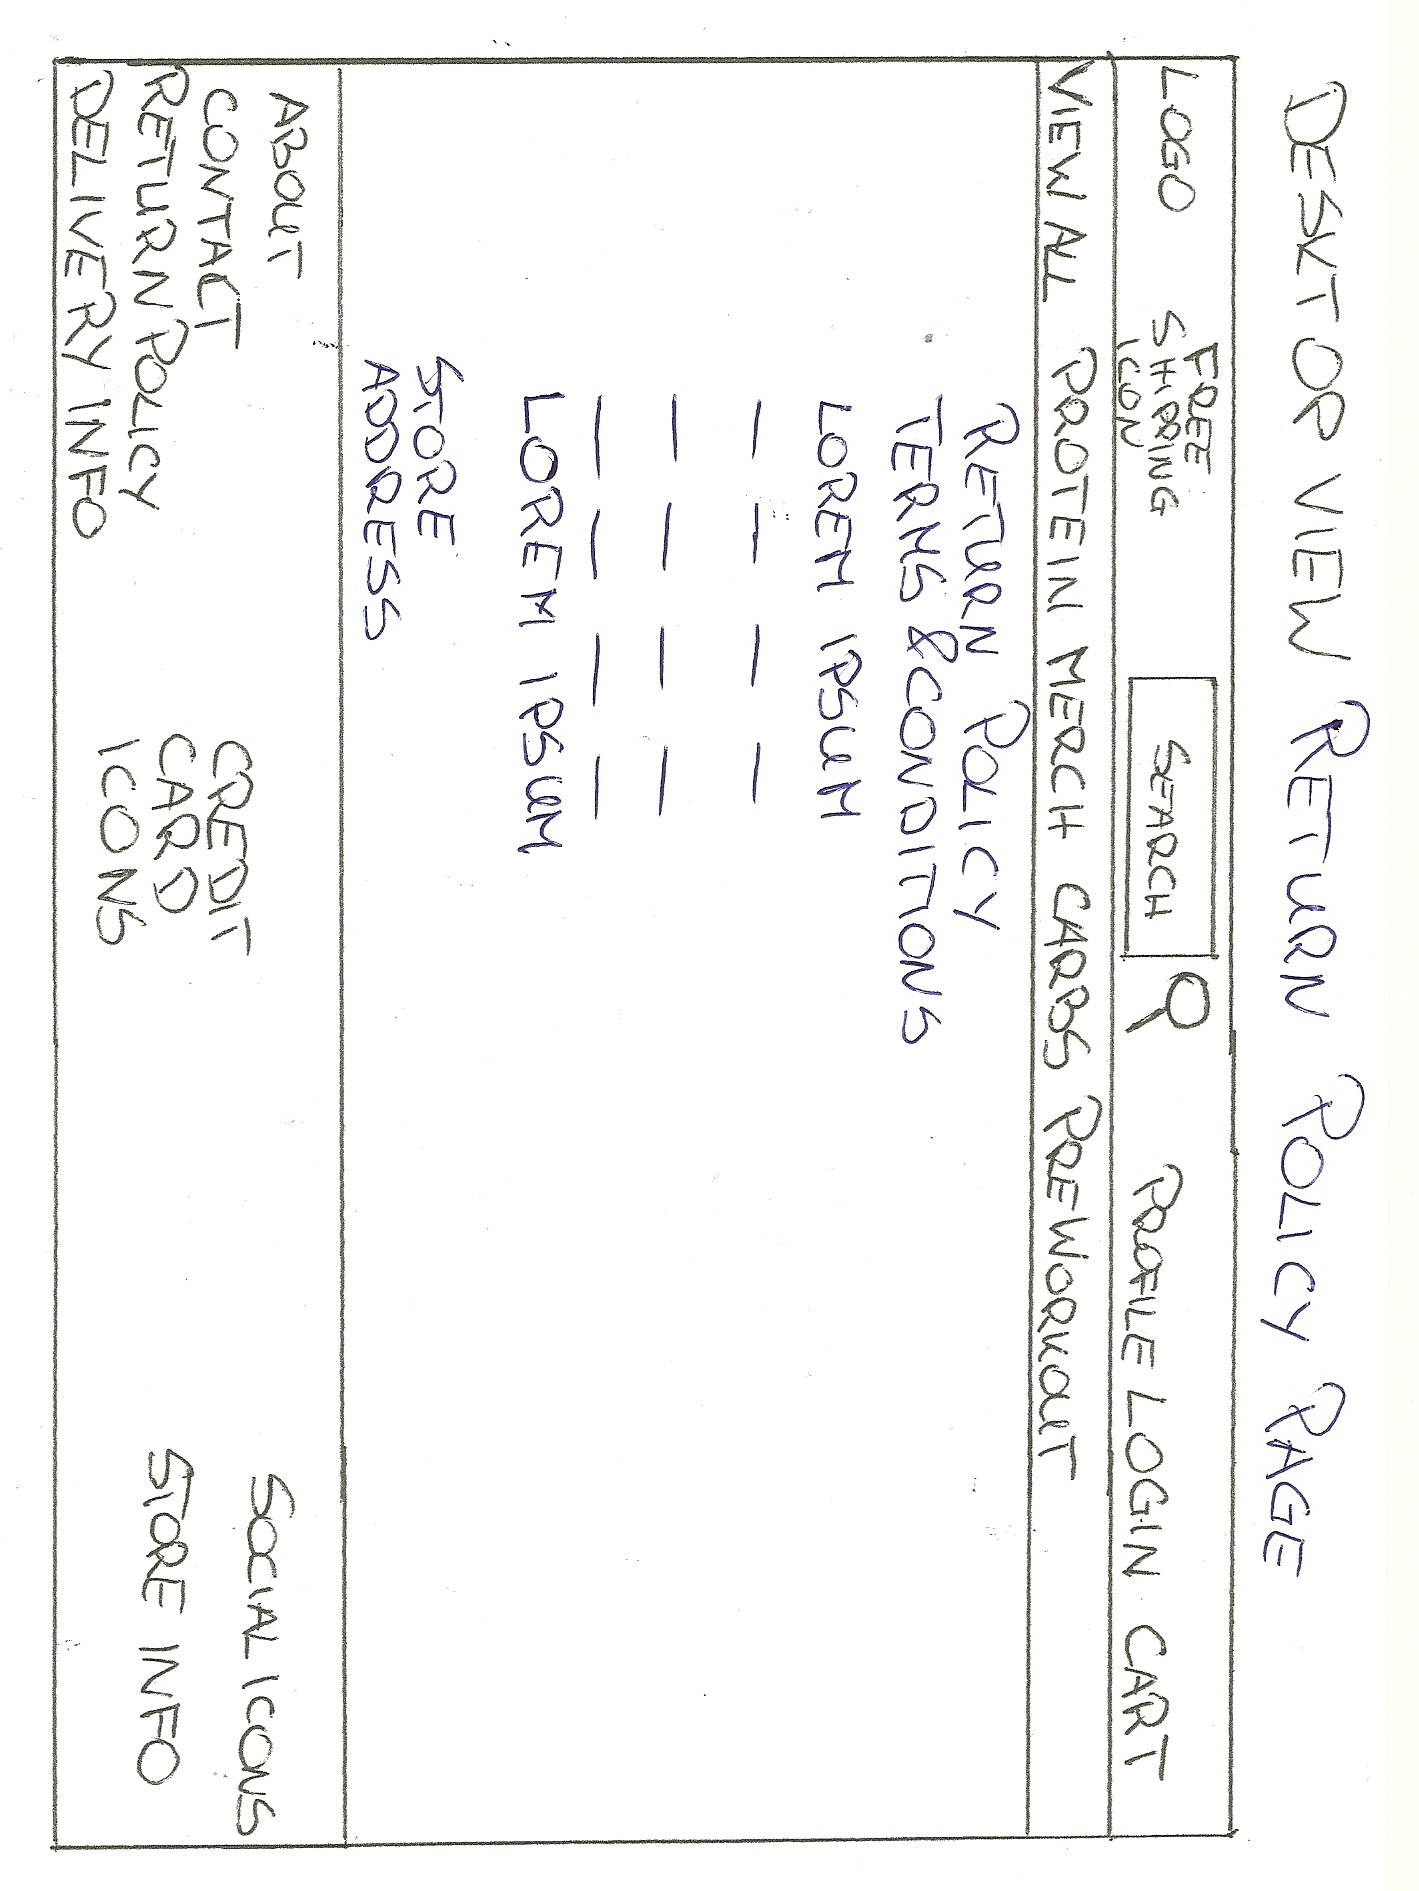 DESKTOP VIEW RETURN POLICY PAGE
LOGO FREE SHIPPING ICON SEARCH PROFILE LOGIN CART
VIEW ALL PROTEIN MERCH CARBS PREWORKOUT
RETURN POLICY
TERMS & CONDITIONS
LOREM IPSUM
LOREM IPSUM
STORE
ADDRESS
ABOUT
CONTACT
RETURN POLICY
DELIVERY INFO
CREDIT
CARD
ICONS
SOCIAL ICONS
STORE INFO